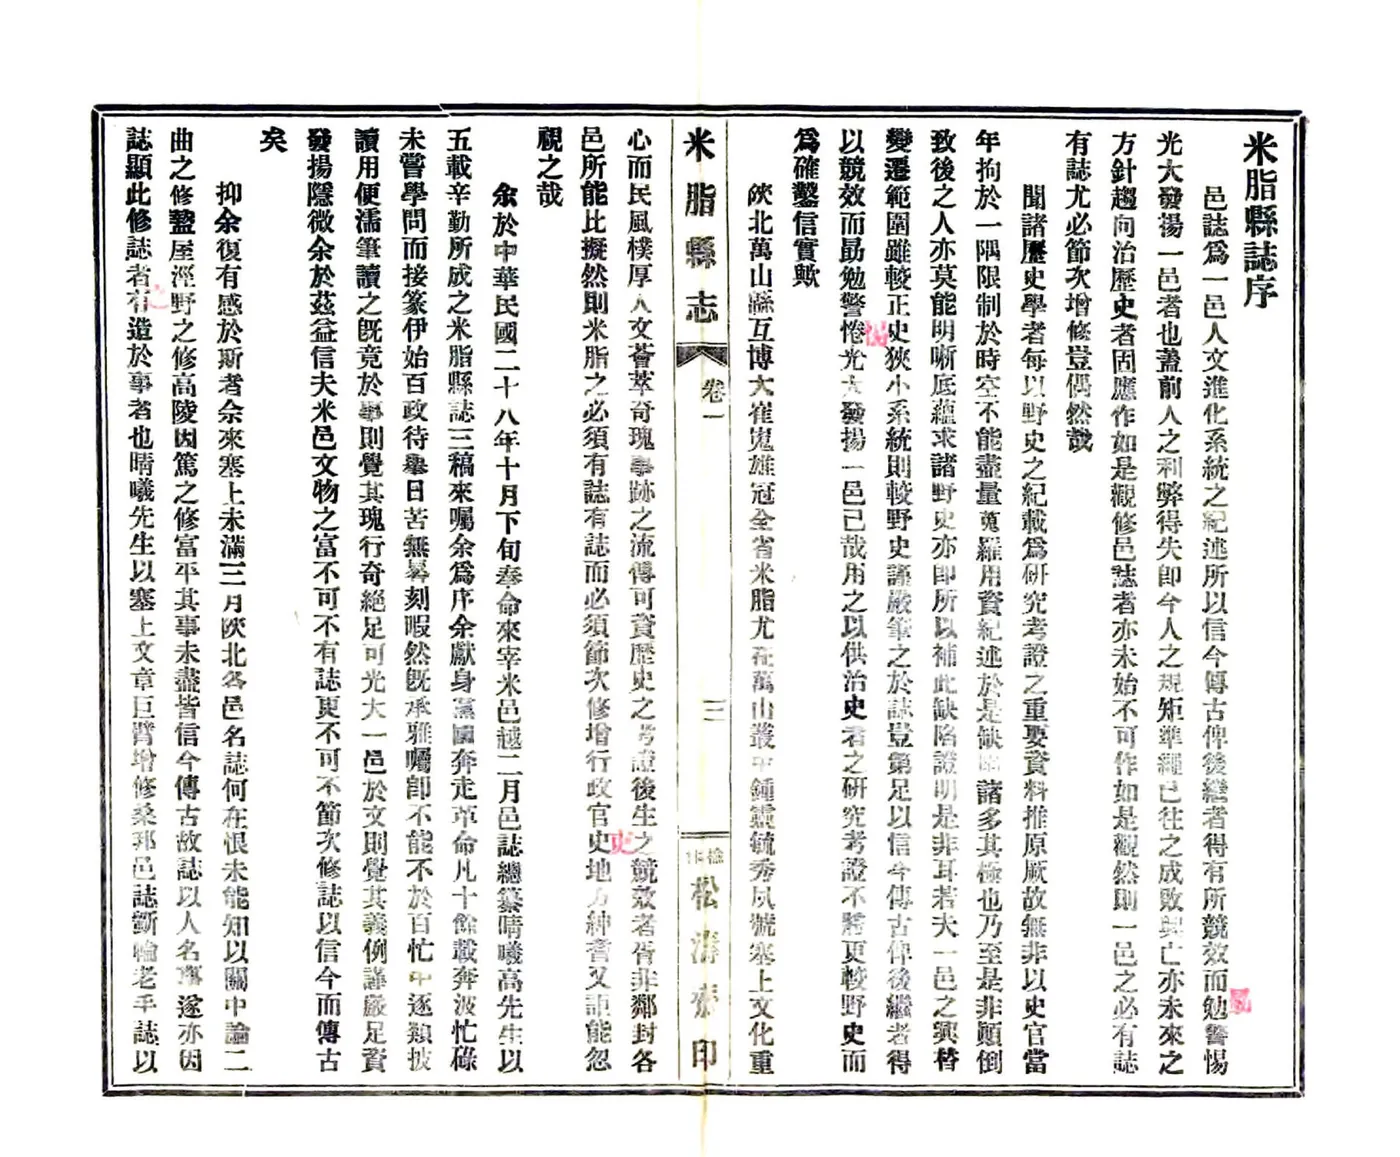 米脂縣誌序
邑誌爲一邑人文進化系統之紀述所以信今傳古俾後繼者得有所競效而勉警惕
光大發揚一邑者也蓋前人之利弊得失即今人之規矩準繩已往之成敗興亡亦未來之
方針趨向治歷史者固應作如是觀修邑誌者亦未始不可作如是觀然則一邑之必有誌
有誌尤必節次增修豈偶然哉
聞諸歷史學者每以野史之紀載爲研究考證之重要資料推原厥故無非以史官當
年拘於一隅限制於時空不能盡量蒐羅用資紀述於是缺陷諸多其極也乃至是非顛倒
致後之人亦莫能明晰底蘊求諸野史亦即所以補此缺陷證明是非耳若夫一邑之興替
變遷範圍雖較正史狹小系統則較野史謹嚴筆之於誌豈第足以信今傳古俾後繼者得
以競效而勗勉警惓光大發揚一邑已哉用之以供治史者之研究考證不將更較野史而
爲確鑿信實歟
陝北萬山緜亙博大崔嵬雄冠全省米脂尤在萬山叢中鍾靈毓秀夙號塞上文化重
米脂縣志
卷一
三
榆林
松濤齋印
心而民風樸厚人文薈萃奇瑰事跡之流傳可資歷史之考證後生之競效者胥非鄰封各
邑所能比擬然則米脂之必須有誌有誌而必須節次修增行政官史地方紳耆又詎能忽
視之哉
余於中華民國二十八年十月下旬奉命來宰米邑越二月邑誌總纂晴曦高先生以
五載辛勤所成之米脂縣誌三稿來囑余爲序余獻身黨國奔走革命凡十餘載奔波忙碌
未嘗學問而接篆伊始百政待舉日苦無晷刻暇然旣承雅囑卽不能不於百忙中逐類披
讀用便濡筆讀之旣竟於事則覺其瑰行奇絕足可光大一邑於文則覺其義例謹嚴足資
發揚隱微余於茲益信夫米邑文物之富不可不有誌更不可不節次修誌以信今而傳古
矣
抑余復有感於斯者余來塞上未滿三月陝北各邑名誌何在恨未能知以關中論二
曲之修盩屋涇野之修高陵因篤之修富平其事未盡皆信今傳古故誌以人名事遂亦因
誌顯此修誌者有造於事者也晴曦先生以塞上文章巨臂增修桑邦邑誌斵輪老手誌以
惕
吏
之